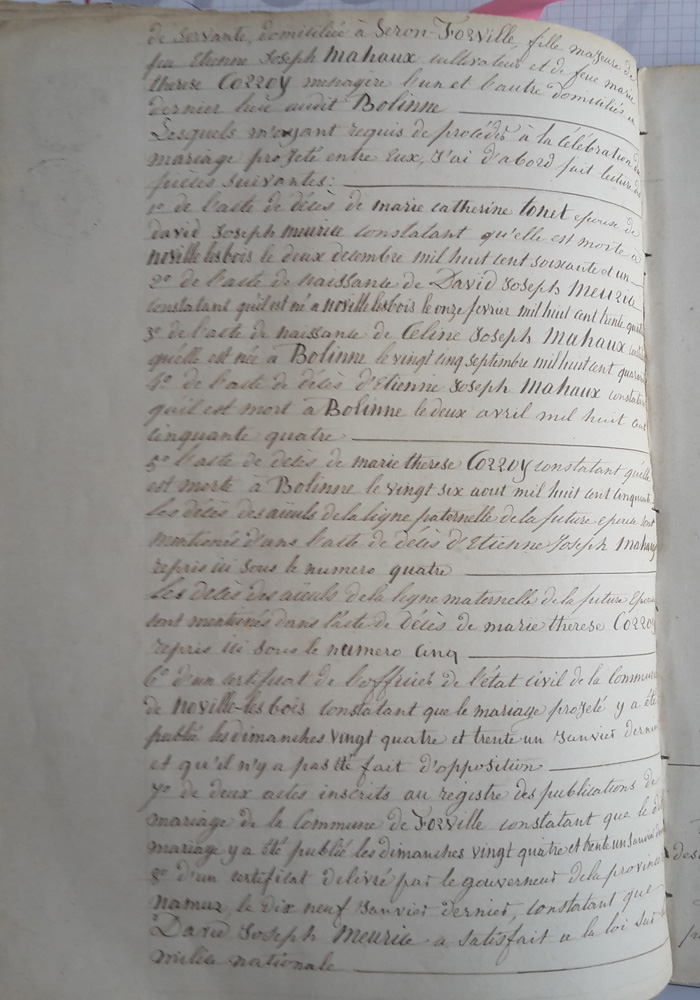 de servante, domiciliée à Seron-Forville, fille majeure de
feu Etienne Joseph Mahaux cultivateur et de feue marie
therese Corroy menagère l'un et l'autre domiciliés en
dernier lieu audit Bolinne
Lesquels m'ayant requis de procéder à la célébration du
mariage projeté entre eux, j'ai d'abord fait lecture des
pièces suivantes:
1º de l'acte de décès de marie catherine tonet epouse de
david Joseph meurice constatant qu'elle est morte à
noville lesbois le deux decembre mil huit cent soixante et un
2º de l'acte de naissance de David Joseph Meurice
constatant qu'il est né a noville lesbois le onze fevrier mil huit cent trente quatre
3º de l'acte de naissance de Celine Joseph Mahaux
qu'elle est née à Bolinne le vingt cinq septembre mil huit cent quarante
4º de l'acte de décès d'Etienne Joseph Mahaux constatant
qu'il est mort à Bolinne le deux avril mil huit cent
cinquante quatre
5º l'acte de decès de marie therese Corroy constatant qu'elle
est morte à Bolinne le vingt six aout mil huit cent cinquante
Les decès des aïeuls de la ligne paternelle de la future epouse sont
mentionés dans l'acte de décès d'Etienne Joseph Mahaux
repris ici sous le numero quatre
Les decès des aïeuls de la ligne maternelle de la future Epouse
sont mentionés dans l'acte de décès de marie therese Corroy
repris ici sous le numero cinq
6º d'un certificat de l'officier de l'état civil de la commune
de noville-les bois constatant que le mariage projeté y a été
publié les dimanches vingt quatre et trente un Janvier dernier
et qu'il n'y a pas été fait d'opposition
7º de deux actes inscrits au registre des publications de
mariage de la Commune de Forville constatant que le dit
mariage y a été publié les dimanches vingt quatre et trente un Janvier
8º d'un certificat delivré par le gouverneur de la province
namur, le dix neuf Janvier dernier, constatant que
David Joseph Meurice a satisfait a la loi sur la
milice nationale